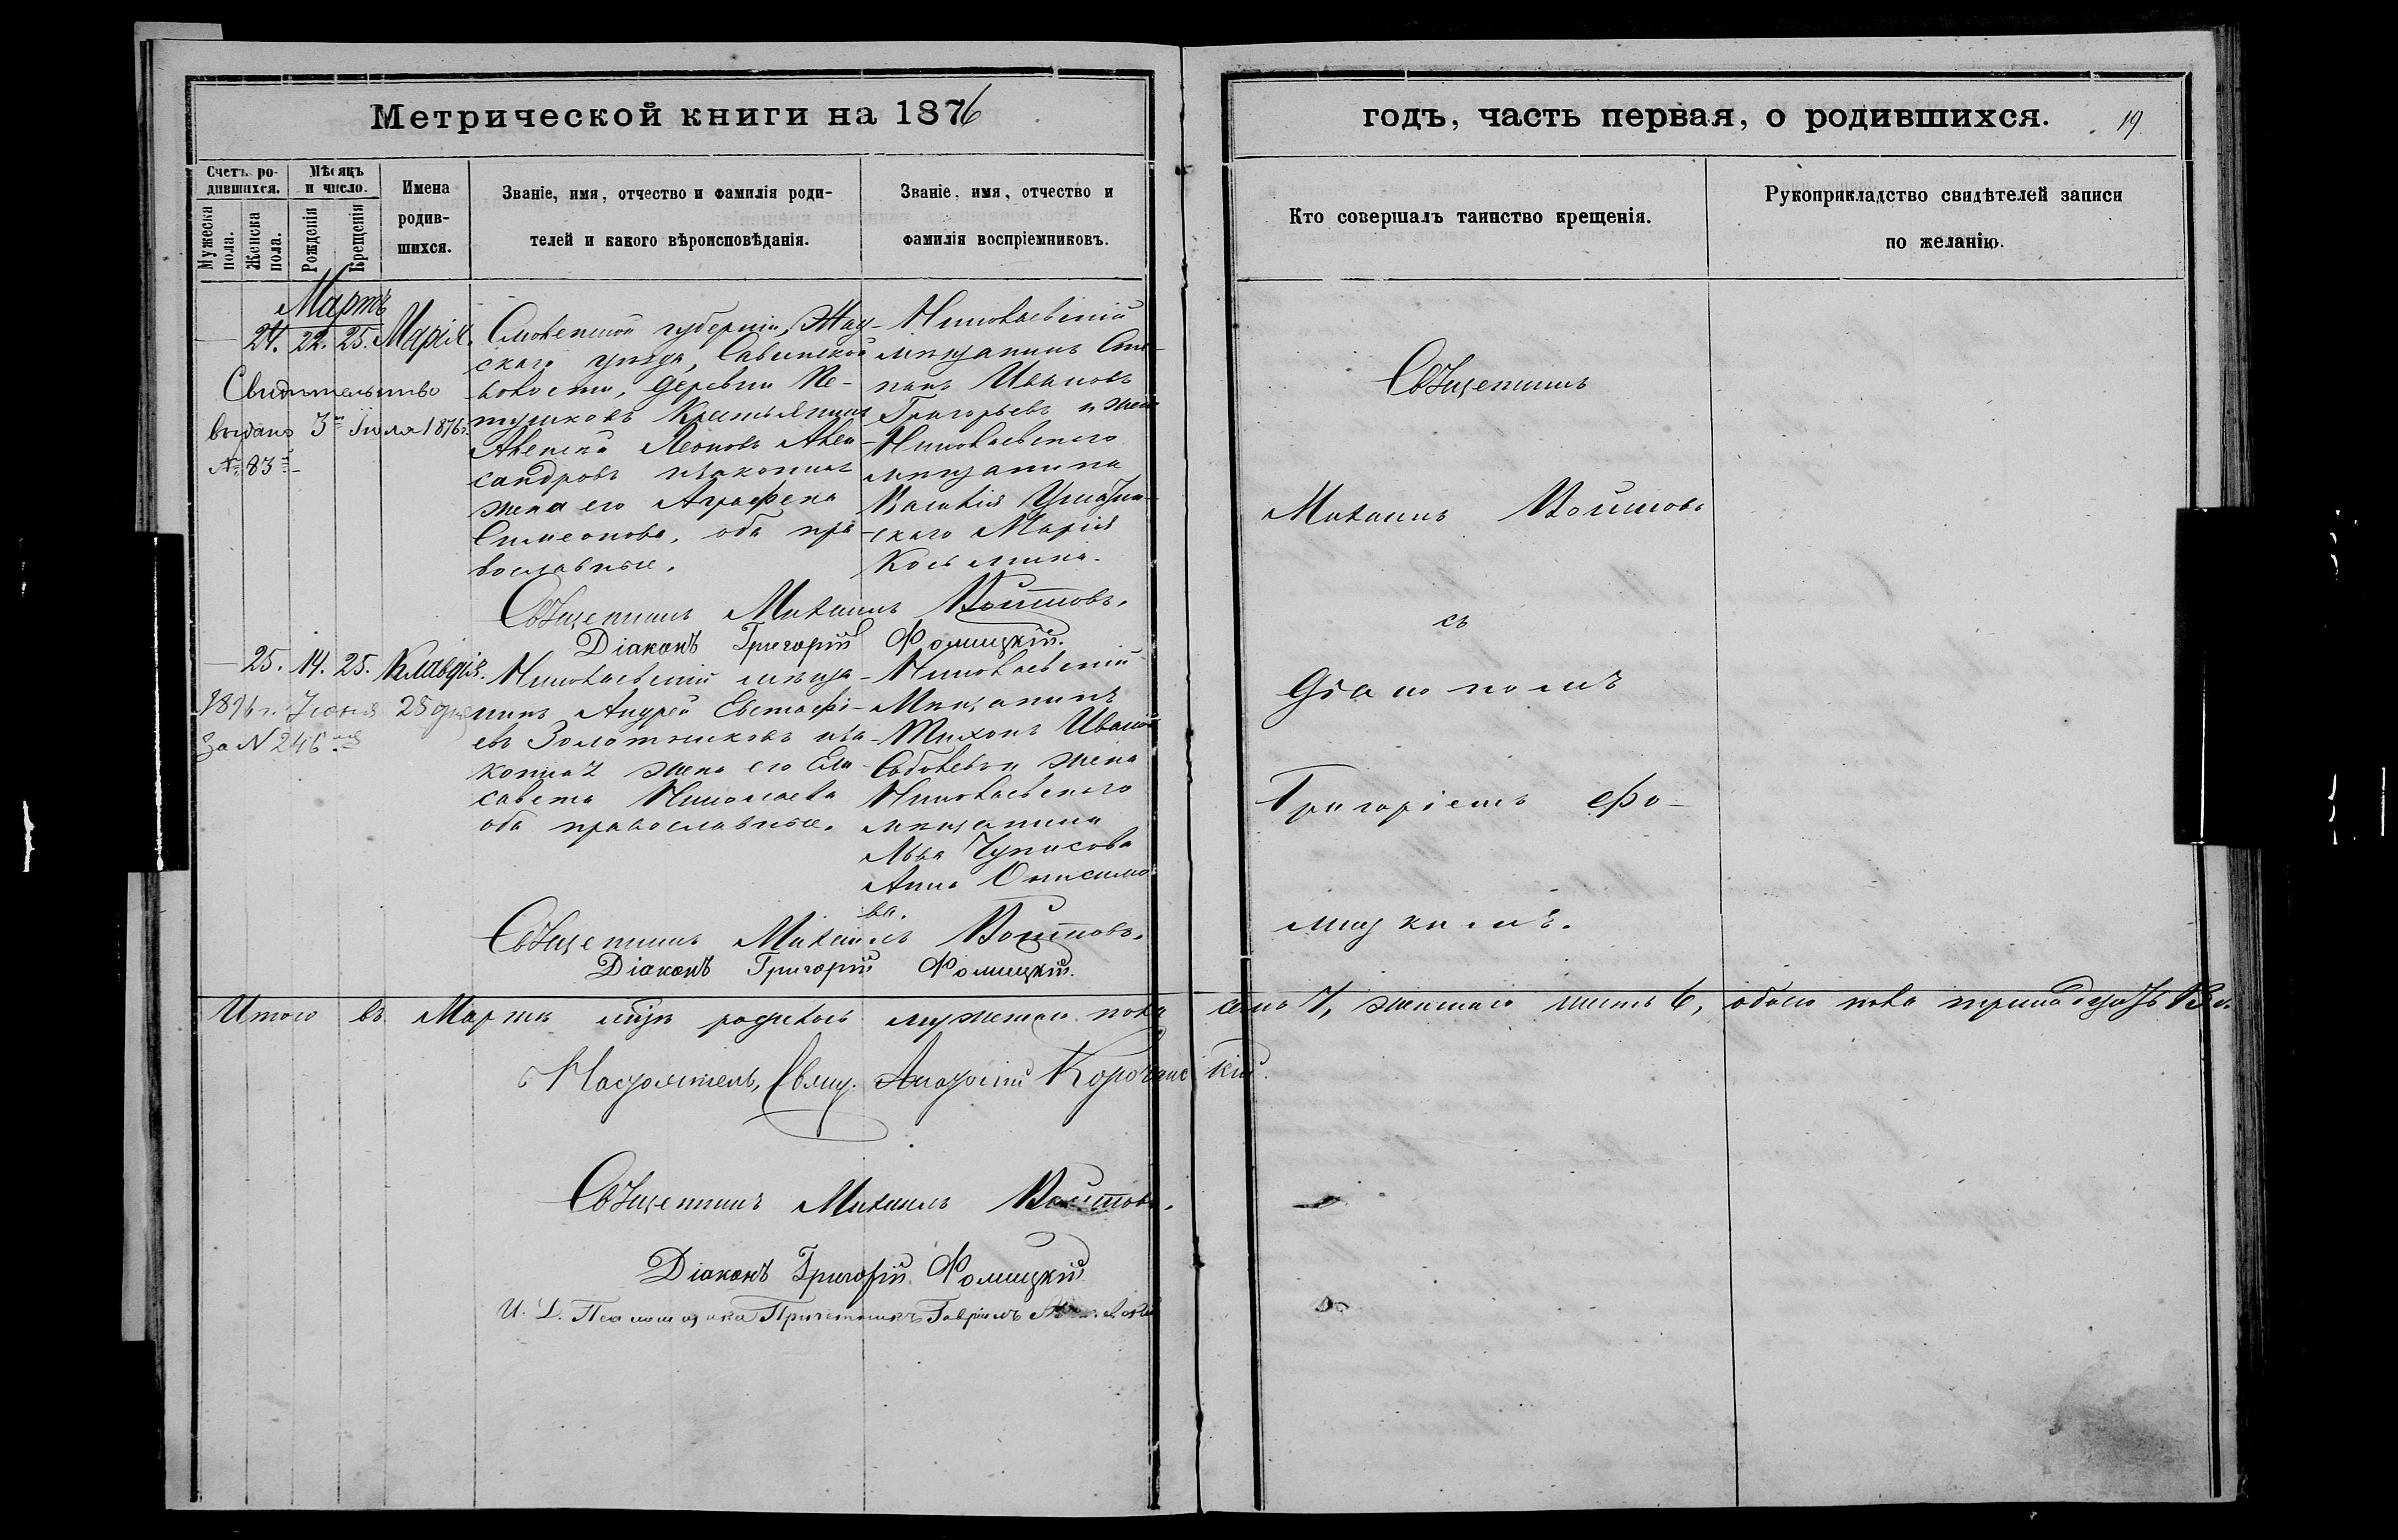 Метрической книги на 1876
годъ, часть первая, о родившихся.
19
Счетъ ро-
дившихся.
Мужеска пола.
Женска пола.
Мѣсяцъ
и число.
Рожденія
Крещенія
Имена
родив-
шихся.
Званіе, имя, отчество и фамилія роди-
телей и какого вѣроисповѣданія.
Званіе, имя, отчество и
фамилія воспріемниковъ.
Кто совершалъ таинство крещенія.
Рукоприкладство свидѣтелей записи
по желанію.
Мартъ
24. 22. 25. Марія.
Свидѣтельство
выдано 3го Іюля 1876 г.
№ 83й
губерніи,
скаго уѣзда, Савинской
волости, деревни Пе-
тушковъ Крестьянинъ
Леоновъ Алек-
сандровъ законная
жена его Аграфена
Симеонова, оба пра-
вославные.
Николаевскій
мѣщанинъ Сте-
панъ Ивановъ
Григорьевъ и жена
Николаевскаго
мѣщанина
Василія
скаго Марія
Косьмина.
Священникъ Михаилъ Войтовъ.
Діаконъ Григорій Фомицкій.
25. 14. 25. Клавдія.
1896 г. Іюня 25 дня
За № 246
Николаевскій мѣща-
нинъ Андрей Евстафі-
евъ Золотниковъ и за-
конная жена его Ели-
савета Николаева
оба православные.
Николаевскій
Мѣщанинъ
Тихонъ Ивановъ
Соболевъ и жена
Николаевскаго
мѣщанина
Льва Чуписова
Анна Онисимо-
ва.
Священникъ Михаилъ Войтовъ.
Діаконъ Григорій Фомицкій.
Священникъ
Михаилъ Войтовъ
съ
Діакономъ
Григоріемъ Фо-
мицкимъ.
Итого въ Мартѣ мѣсяцѣ родилось мужескаго пола семь 7, женскаго шесть 6, обоего пола тринадцать 13.
Настоятель, Свящ. Анатолій Корочанскій.
Священникъ Михаилъ Войтовъ.
Діаконъ Григорій Фомицкій
И. Д. Псаломщика Причетникъ Гавріилъ